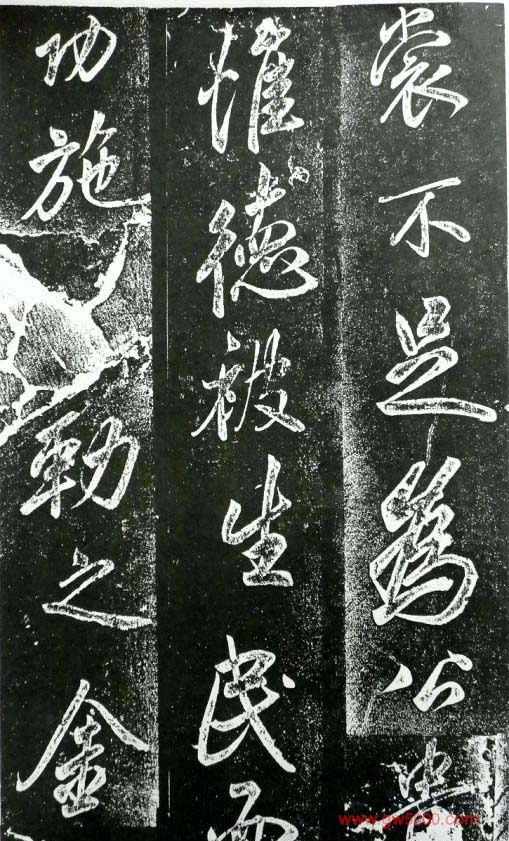 裳不足為公貴
惟德被生民而
功施
勒之金
www.gw5000.com